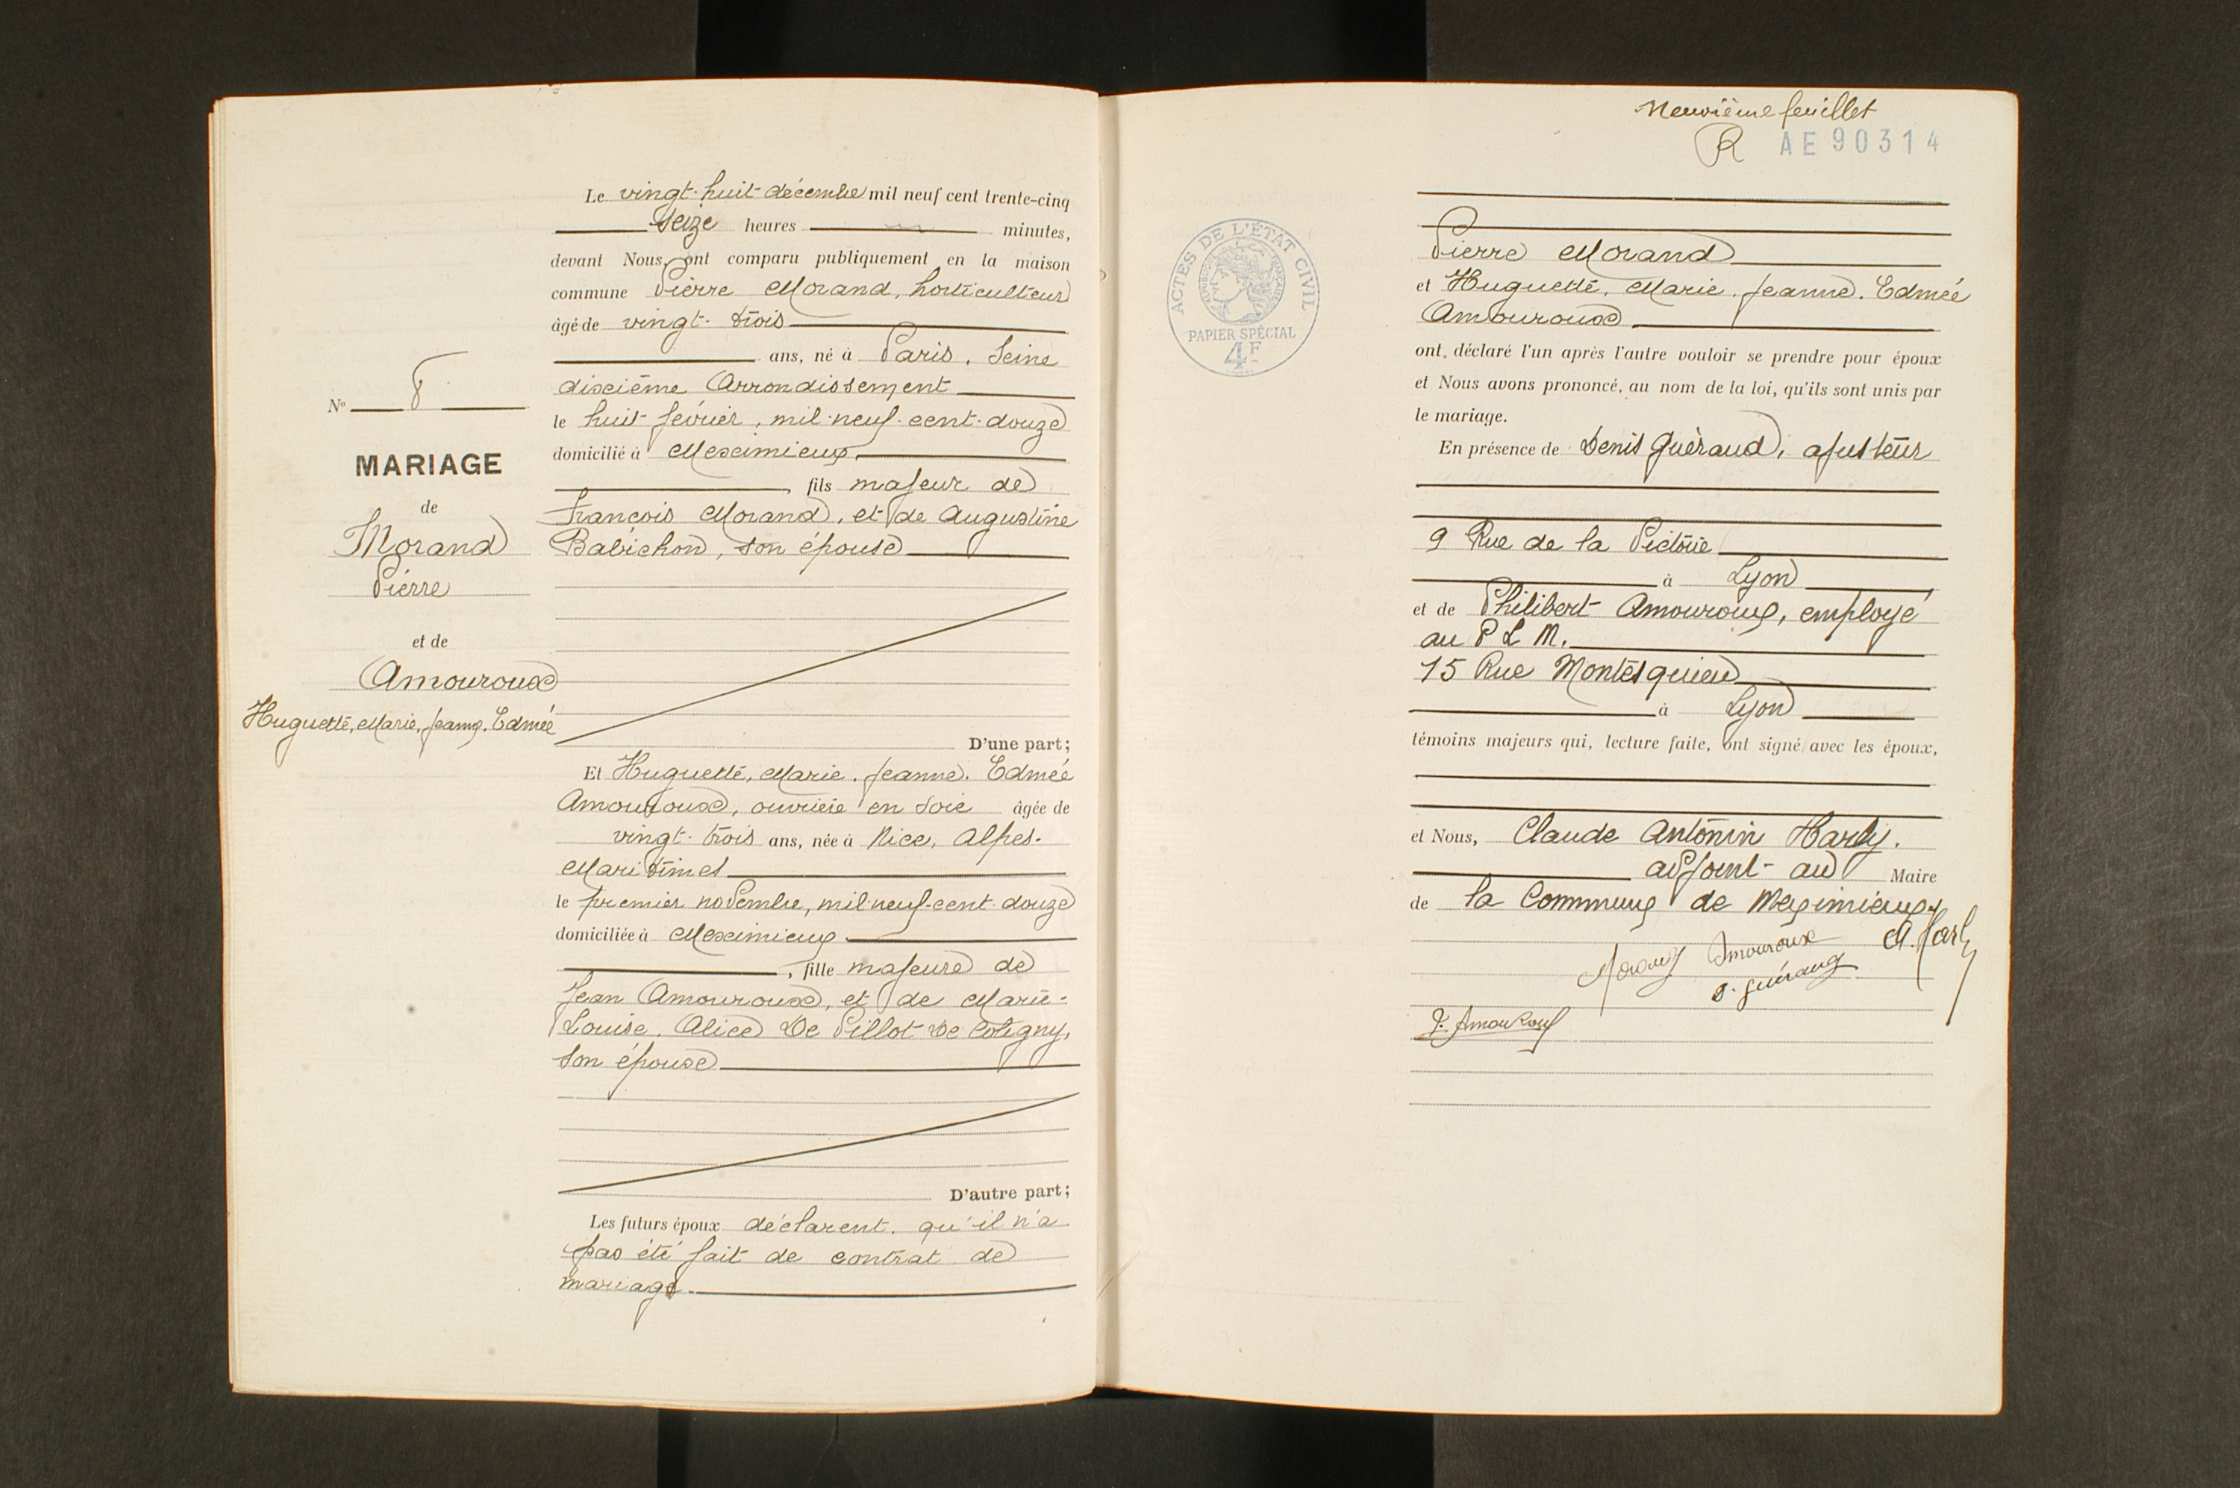 Le vingt-huit décembre mil neuf cent trente-cinq
seize heures minutes,
devant Nous, ont comparu publiquement en la maison
commune Pierre Morand, horticulteur
âgé de vingt-trois
ans, né à Paris, Seine
dixième Arrondissement
le huit février, mil-neuf-cent-douze
domicilié à Meximieux
, fils majeur de
François Morand, et de Augustine
Babichon, son épouse
D'une part;
Et Huguette, Marie, Jeanne, Edmée
Amouroux, ouvrière en soie âgée de
vingt-trois ans, née à Nice, Alpes-
Maritimes
le premier novembre, mil-neuf-cent-douze
domiciliée à Meximieux
, fille majeure de
Jean Amouroux, et de Marie-
Louise, Alice De Pillot De Coligny,
son épouse
D'autre part;
Les futurs époux déclarent qu'il n'a
pas été fait de contrat de
mariage.
No 8
MARIAGE
de
Morand
Pierre
et de
Amouroux
Huguette, Marie, Jeanne, Edmée
Neuvième feuillet
R AE90314
ACTES DE L'ÉTAT CIVIL
PAPIER SPÉCIAL
4F
Pierre Morand
et Huguette, Marie, Jeanne, Edmée
Amouroux
ont, déclaré l'un après l'autre vouloir se prendre pour époux
et Nous avons prononcé, au nom de la loi, qu'ils sont unis par
le mariage.
En présence de Denis Guéraud, ajusteur
9 Rue de la Victoire
à Lyon
et de Philibert Amouroux, employé
au P L M.
15 Rue Montesquieu
à Lyon
témoins majeurs qui, lecture faite, ont signé avec les époux,
et Nous, Claude Antonin Harly.
adjoint au Maire
de la Commune de Meximieux
Morand Amouroux A. Harly
D. Guéraud
P. Amouroux